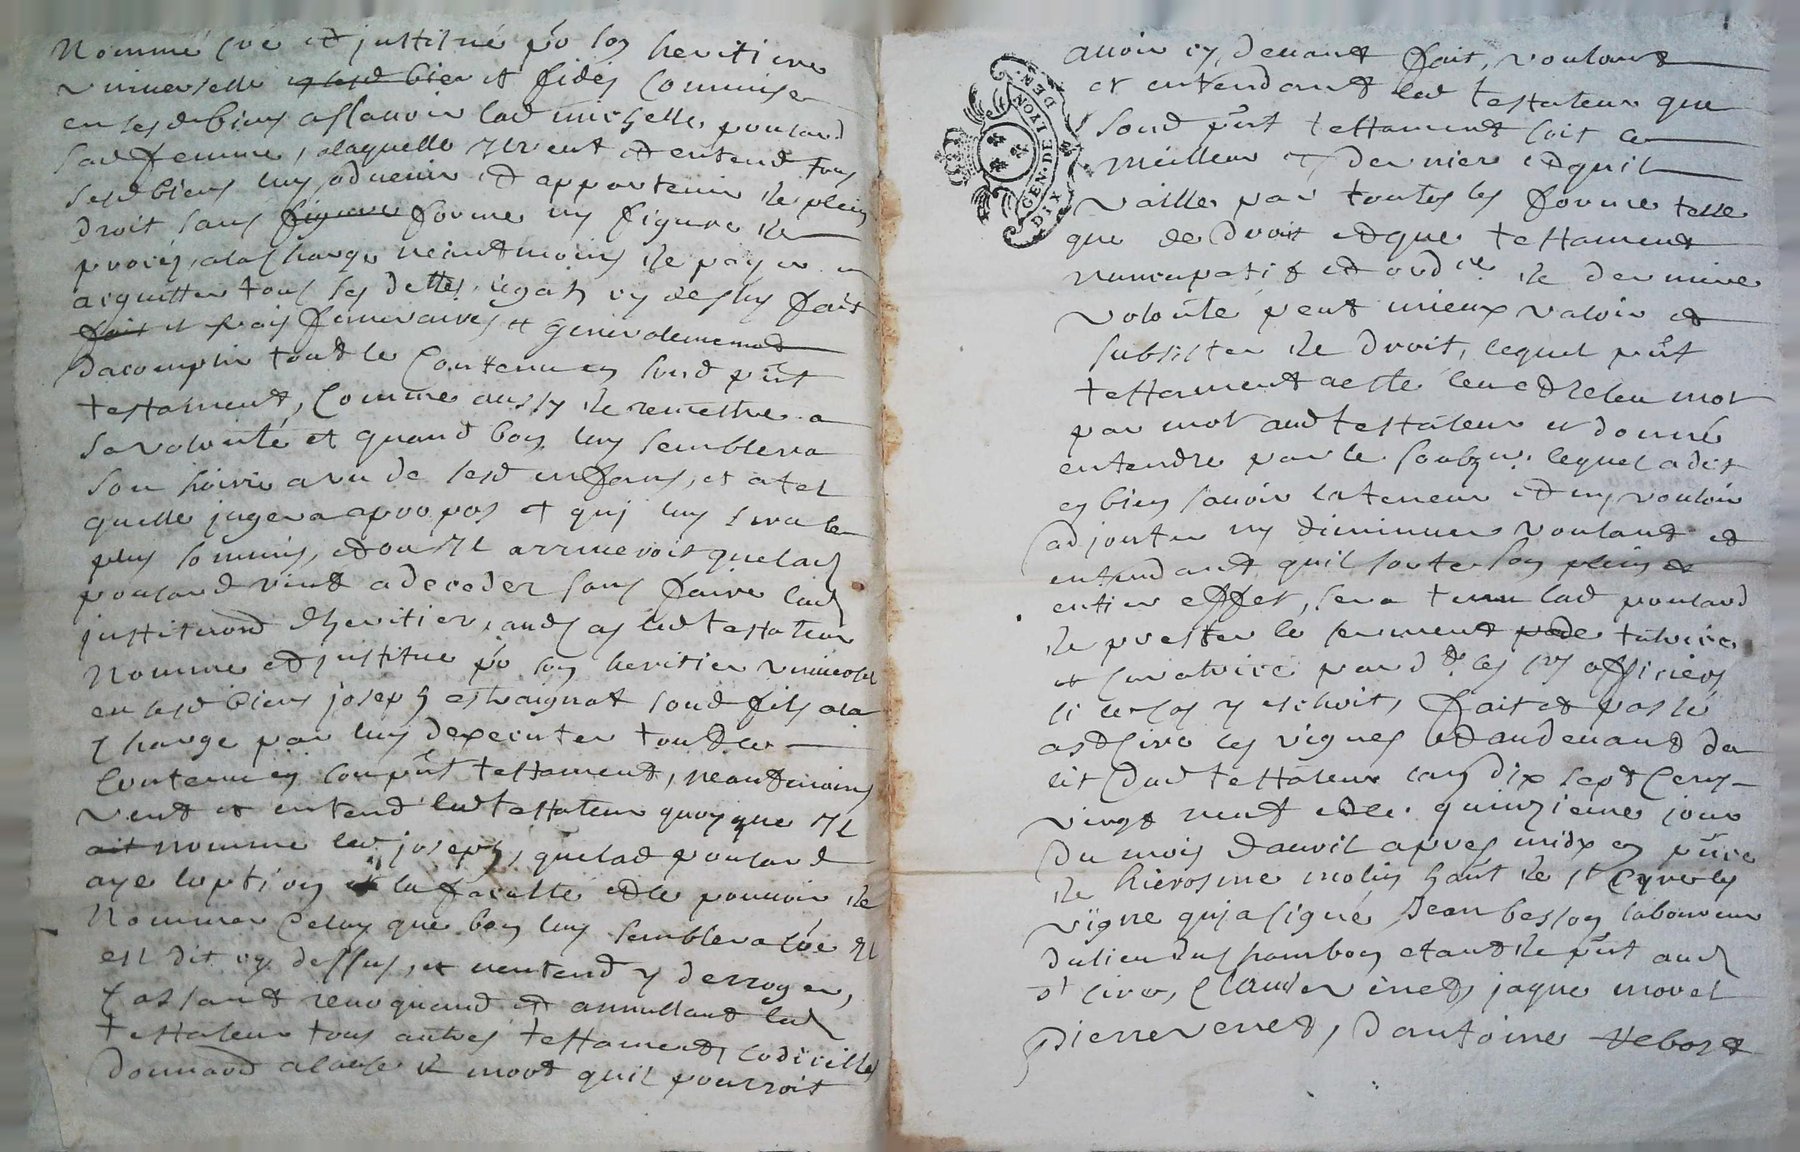 nommé créé et justitué po son heritiere
universelle et fidei commise
en sesd biens assauoir lad michelle poulard
sad femme, a laquelle il veut et entend tous
sesd biens luy aduenir et appartenir de plein
droit sans figure forme ny figure de
procés, a la charge neantmoins de payer et
acquitter tous ses dettes, legats cy dessus fait
fait et frais funeraires et generalement
dacomplir tout le contenu en sond pñt
testament, comme aussy de remettre a
sa volonté et quand bon luy semblera
son hoirie a un de sesd enfans, et a tel
quelle jugera apropos et quj luy sera le
plus soumis, et ou il arriueroit que lad
poulard vint a deceder sans faire lad
justitution dheritier, aud cas led testateur
nomme et justitue po son heritier uniuersel
en sesd biens joseph estraignat sond fils a la
charge par luy dexecuter tout le
contenu en son pñt testament, neantmoins
veut et entend led testateur quoyque il
ait nomme led joseph, que lad poulard
aye loption et la faculté et le pouuoir de
nommer celuy que bon luy semblera côe il
est dit cy dessus, et nentend y derroger,
cassant reuoquand et annullant led
testateur tous autres testament, codicilles
donnaōn a cause de mort quil pourroit
auoir cy deuant fait, voulant
et entendant led testateur que
sond pñt testament soit le
meilleur et dernier et quil
vaille par toutes les forme telle
que de droit et que testament
nuncupatif et ordre de derniere
volonté peut mieux valoir et
subsister de droit, lequel pñt
testament a esté leu et releu mot
par mot aud testateur et donné
entendre par le soubzné. lequel a dit
en bien sauoir la teneur et ny vouloir
adjouter ny diminuer voulant et
entendant quil sorte son plein et
entier effet, sera tenue lad poulard
de prester le serment de tutrice
et curatrice pard les srs officiers
si le cas y echoit, fait et passé
a st cire les vignes et au deuand du
lit dud testateur lan dix sept cens
vingt neuf et le quinzieme jour
du mois dauril apres midy en pñce
de hierosme molin hant de st Cyre les
vigne quj a signé, Jean besson laboureur
du lieu du chambon etant de pñt aud
st cire, Claude verned, jaque morel
pierre verned, d'antoine
GEN·DE·LYON
DIX DEN.